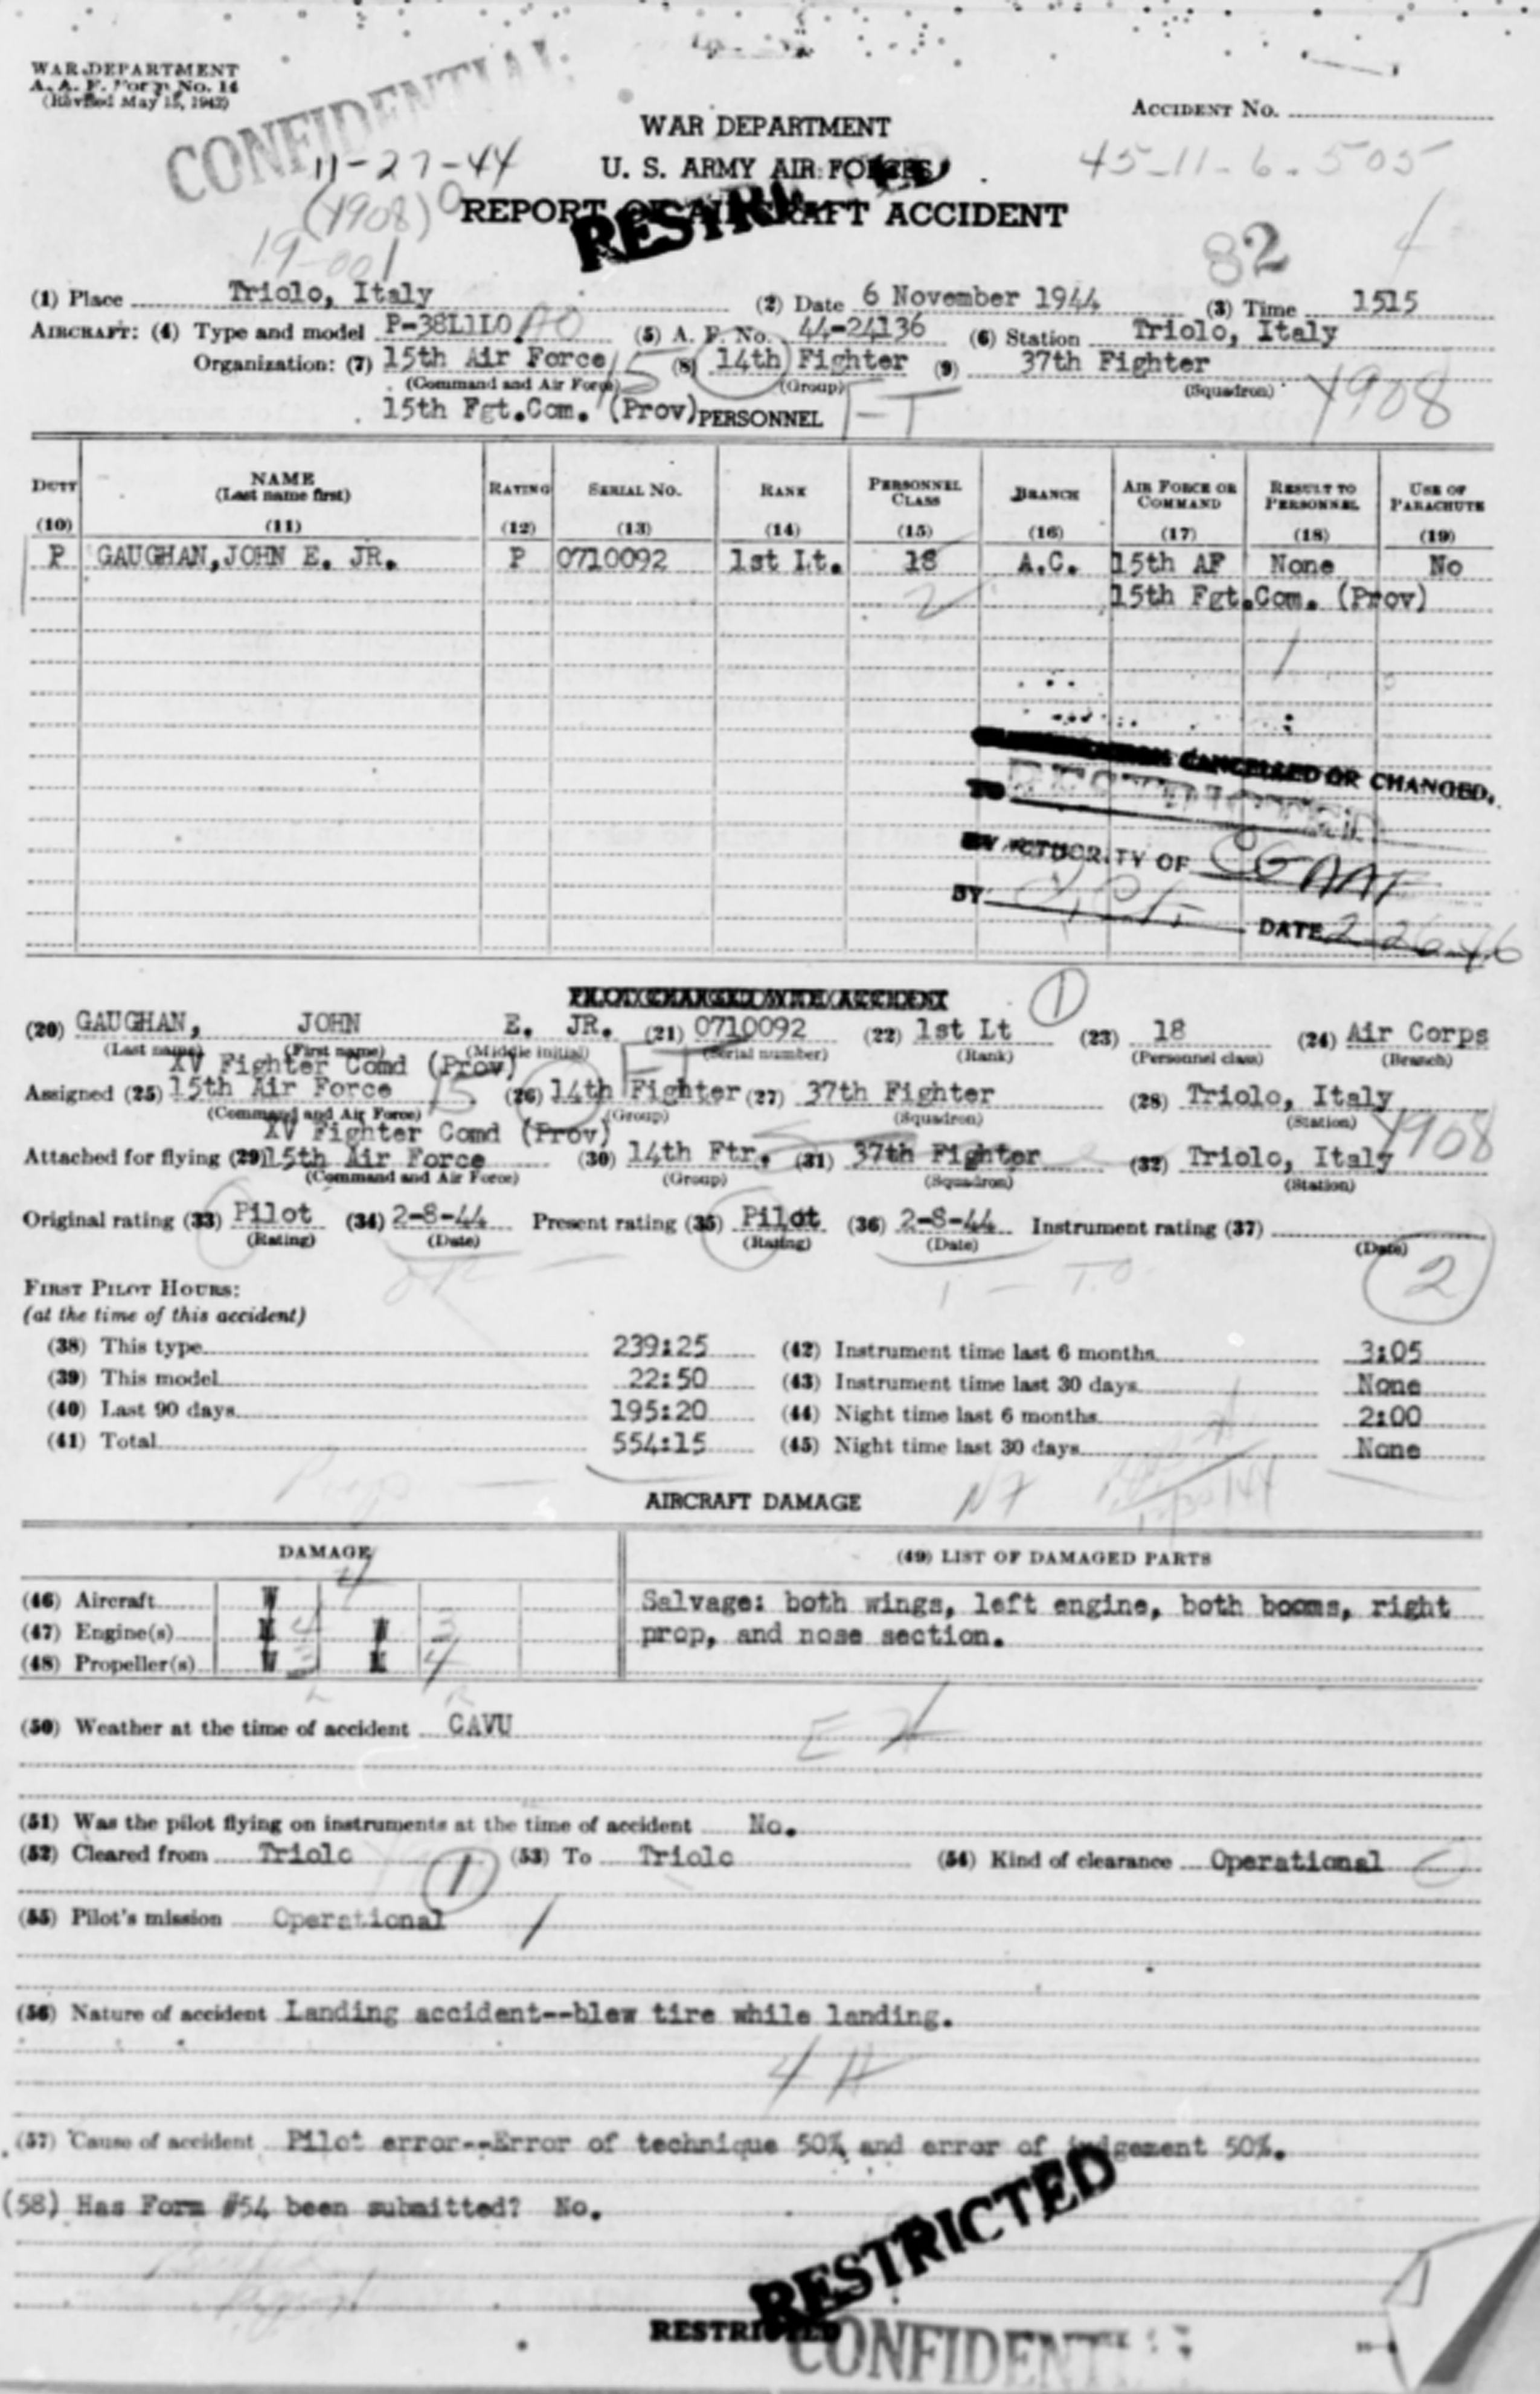 WAR DEPARTMENT
A. A. F. Form No. 14
(Revised May 15, 1942)
ACCIDENT No.
CONFIDENTIAL
WAR DEPARTMENT
11-27-44
U. S. ARMY AIR FORCES
45-11-6-505
(4908)
REPORT OF AIRCRAFT ACCIDENT
RESTRICTED
19-001
82
(1) Place Triolo, Italy (2) Date 6 November 1944 (3) Time 1515
AIRCRAFT: (4) Type and model P-38L1LO (5) A. F. No. 44-24136 (6) Station Triolo, Italy
Organization: (7) 15th Air Force 15 (8) 14th Fighter (9) 37th Fighter
(Command and Air Force) (Group) (Squadron)
4908
15th Fgt.Com. (Prov) PERSONNEL FT
DUTY NAME (Last name first) RATING SERIAL NO. RANK PERSONNEL CLASS BRANCH AIR FORCE OR COMMAND RESULT TO PERSONNEL USE OF PARACHUTE
(10) (11) (12) (13) (14) (15) (16) (17) (18) (19)
P GAUGHAN,JOHN E. JR. P 0710092 1st Lt. 18 A.C. 15th AF None No
2 15th Fgt.Com. (Prov)
1
CANCELLED OR CHANGED.
TO RESTRICTED
BY AUTHORITY OF CG AAF
BY DATE 2-26-46
PILOT CHARGED WITH ACCIDENT
1
(20) GAUGHAN, JOHN E. JR. (21) 0710092 (22) 1st Lt (23) 18 (24) Air Corps
(Last name) (First name) (Middle initial) (Serial number) (Rank) (Personnel class) (Branch)
XV Fighter Comd (Prov) FT
Assigned (25) 15th Air Force 15 (26) 14th Fighter (27) 37th Fighter (28) Triolo, Italy
(Command and Air Force) (Group) (Squadron) (Station)
XV Fighter Comd (Prov) 4908
Attached for flying (29) 15th Air Force (30) 14th Ftr. (31) 37th Fighter (32) Triolo, Italy
(Command and Air Force) (Group) (Squadron) (Station)
Original rating (33) Pilot (34) 2-8-44 Present rating (35) Pilot (36) 2-8-44 Instrument rating (37)
(Rating) (Date) (Rating) (Date) (Date)
2
FIRST PILOT HOURS:
(at the time of this accident)
(38) This type 239:25 (42) Instrument time last 6 months 3:05
(39) This model 22:50 (43) Instrument time last 30 days None
(40) Last 90 days 195:20 (44) Night time last 6 months 2:00
(41) Total 554:15 (45) Night time last 30 days None
AIRCRAFT DAMAGE
DAMAGE (49) LIST OF DAMAGED PARTS
4
(46) Aircraft W Salvage: both wings, left engine, both booms, right
(47) Engine(s) 4 3 prop, and nose section.
(48) Propeller(s) 3 4
(50) Weather at the time of accident CAVU
(51) Was the pilot flying on instruments at the time of accident No.
(52) Cleared from Triolo (53) To Triolo (54) Kind of clearance Operational
1
(55) Pilot's mission Operational
(56) Nature of accident Landing accident--blew tire while landing.
(57) Cause of accident Pilot error--Error of technique 50% and error of judgement 50%.
RESTRICTED
(58) Has Form #54 been submitted? No.
RESTRICTED
CONFIDENTIAL